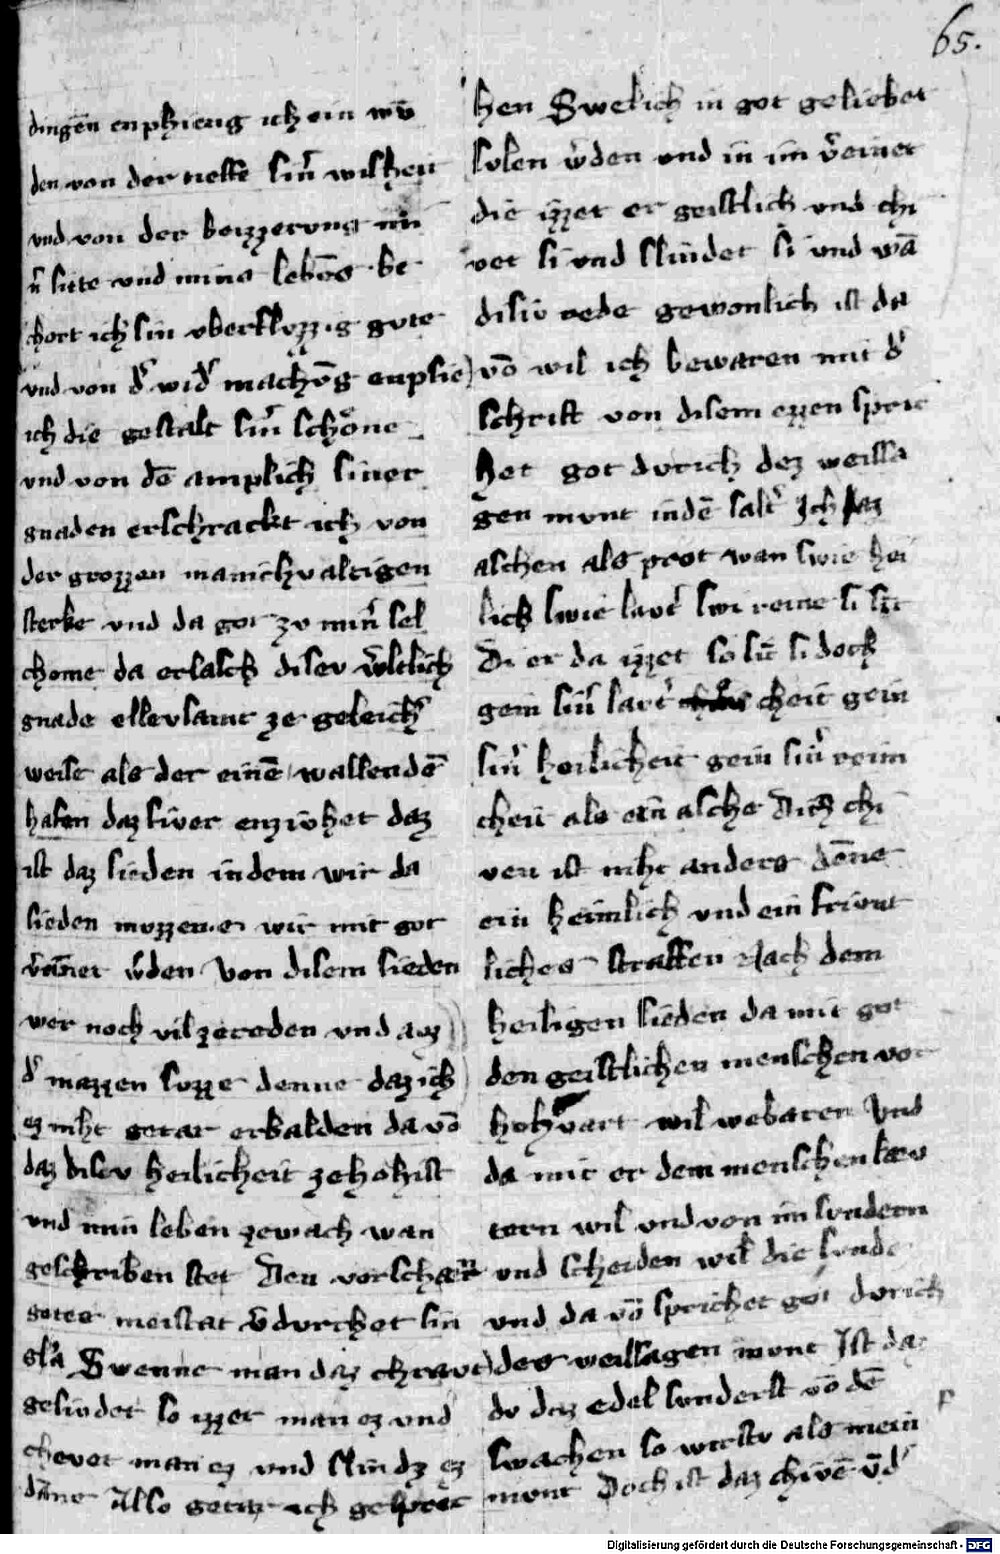 65.
dingen enphieng ich ein wū
den von der tieffe sinr wisheit
und von der bezzerung mi
nr site und mins lebens be
chort ich sin uberfluzzig gute
und von dr widrmachūg enpfie
ich die gestalt sinr schone
und von dē amplich siner
gnaden erschrackt ich von
der grozzen manichvaltigen
sterke und da got zu minr sel
chome da erlasch disev wltlich
gnade ellevsamt ze geleichr
weise als der einē wallendē
hafen daz fiver enzivhet daz
ist daz sieden in dem wir da
sieden muzzen e wir mit got
vͤainet wͤden Von disem sieden
wer noch vil ze reden und auz
dr mazzen suzze denne daz ich
ez niht getar erbalden da vō
daz disev heilicheit ze hoh ist
und min leben ze wach wan
geschriben stet Den vorschær
gotes meistat vdruchet sin
gla Swenne man daz chraut
gesiudet so izzet man ez und
chevet man ez und slindz ez
dāne Also getar ich gesprec
hen Swelich in got geliebet
sulen wͤden und in im vͤeinet
die izzet er geistlich und chi
vet si und slindet si und wā
disiv rede gewonlich ist da
vō wil ich bewaren mit dr
schrift von disem ezzen spric
het got durich dez weissa
gen munt in dē saltr Ich az
aschen als prot wan swie hei
lich swie lautr swi reine si sin
Di er da izzet so sīt si doch
gein sinr lautr cheit gein
sinr heilicheit gein sinr reini
cheit als ein asche Ditz chi
ven ist niht anders dēne
ein heimlich und ein friunt
liches straffen Nach dem
heiligen sieden da mit got
den geistlichen menschen vor
hohvart wil webaren Und
da mit er dem menschen læv
tern wil und von im sundern
und scheiden wil die sunde
und da vō sprichet got durich
des weissagen munt Ist daz
du daz edel sunderst vō dē
swachen so wirstu als mein
munt Doch ist daz chivē vͤdr